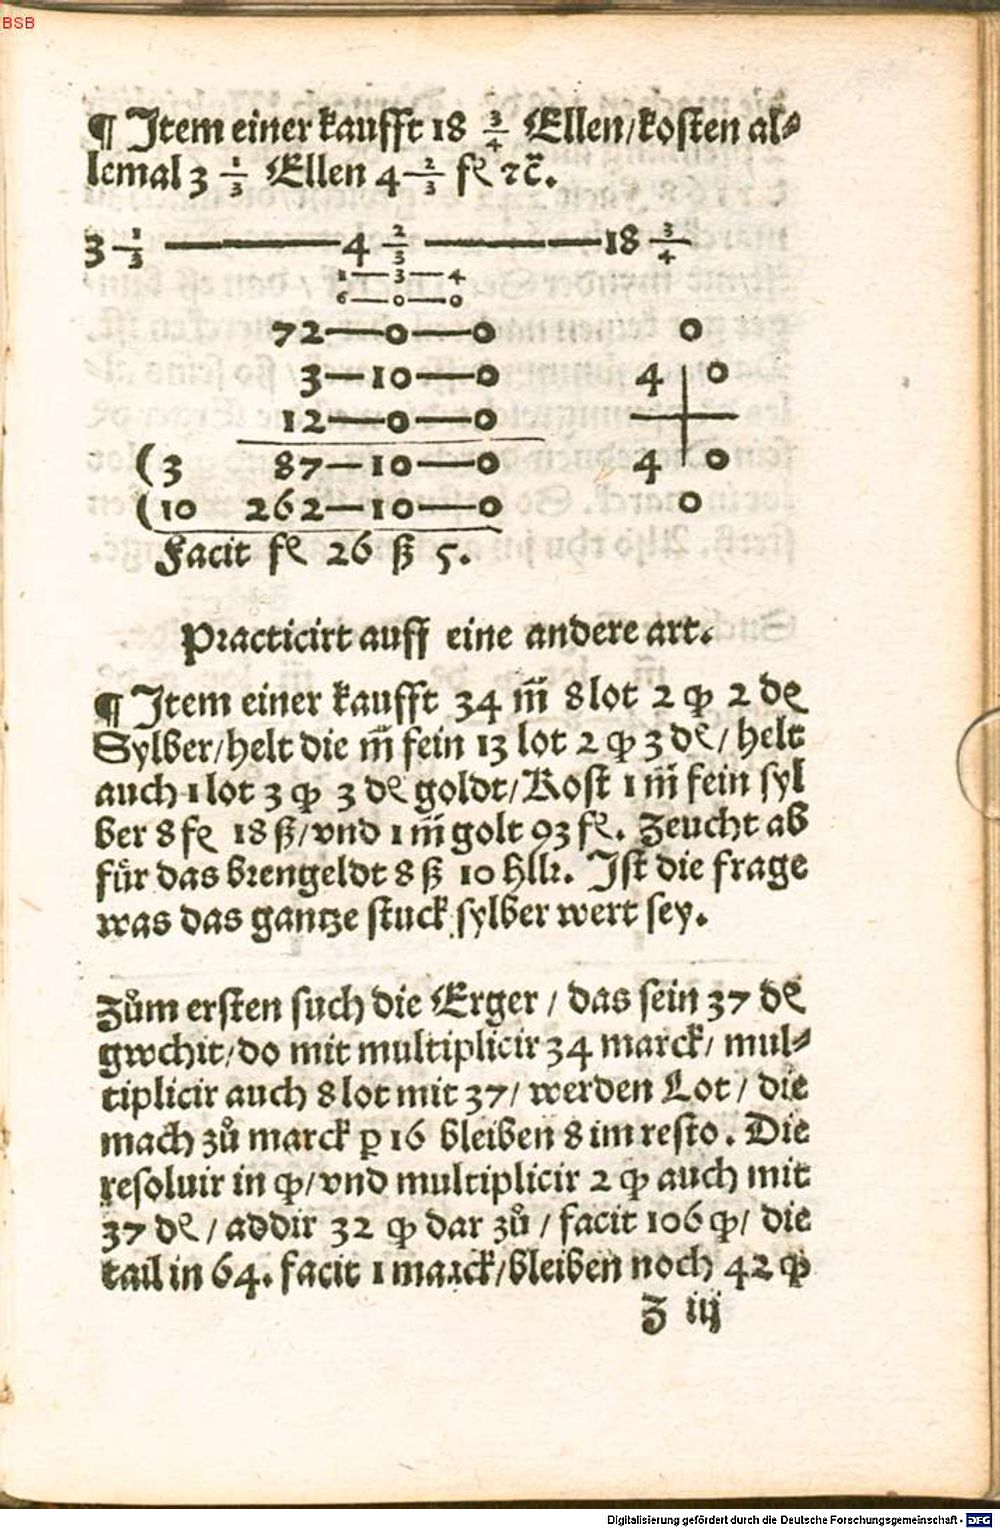 BSB
¶ Item einer kaufft 18 3/4 Ellen/kosten al⸗
lemal 3 1/3 Ellen 4 2/3 fl ⁊c̃.
3 1/3 — 4 2/3 — 18 3/4
1—3—4
6—0—0
72—0—0 0
3—10—0 4 0
12—0—0
(3 87—10—0 4 0
(10 262—10—0 0
Facit fl 26 ß 5.
Practicirt auff eine andere art.
¶ Item einer kaufft 34 m̃ 8 lot 2 qͥ 2 dₑ
Sylber/helt die m̃ fein 13 lot 2 qͥ 3 dₑ/ helt
auch 1 lot 3 qͥ 3 dₑ goldt/Kost 1 m̃ fein syl
ber 8 fl 18 ß/vnd 1 m̃ golt 93 fl. Zeucht ab
für das brengeldt 8 ß 10 hllr. Ist die frage
was das gantze stuck sylber wert sey.
Zům ersten such die Erger / das sein 37 dₑ
gwchit/do mit multiplicir 34 marck/ mul⸗
tiplicir auch 8 lot mit 37/ werden Lot / die
mach zů marck p 16 bleiben 8 im resto. Die
resoluir in qͥ/vnd multiplicir 2 qͥ auch mit
37 dₑ / addir 32 qͥ dar zů / facit 106 qͥ/ die
tail in 64. facit 1 marck/bleiben noch 42 qͥ
Z iij
Digitalisierung gefördert durch die Deutsche Forschungsgemeinschaft - DFG